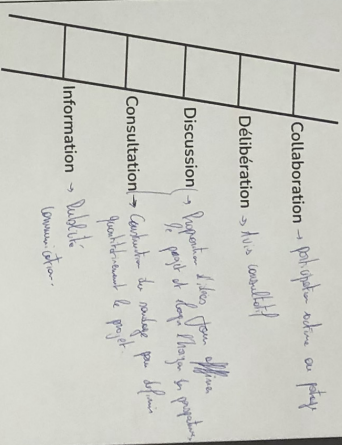 Collaboration → participation active au partage
Délibération → Avis consultatif
Discussion → Proposition d'idées pour affiner
le projet et
Consultation → Construction de sondage pour définir
quantitativement le projet.
Information → Publicité
communication.